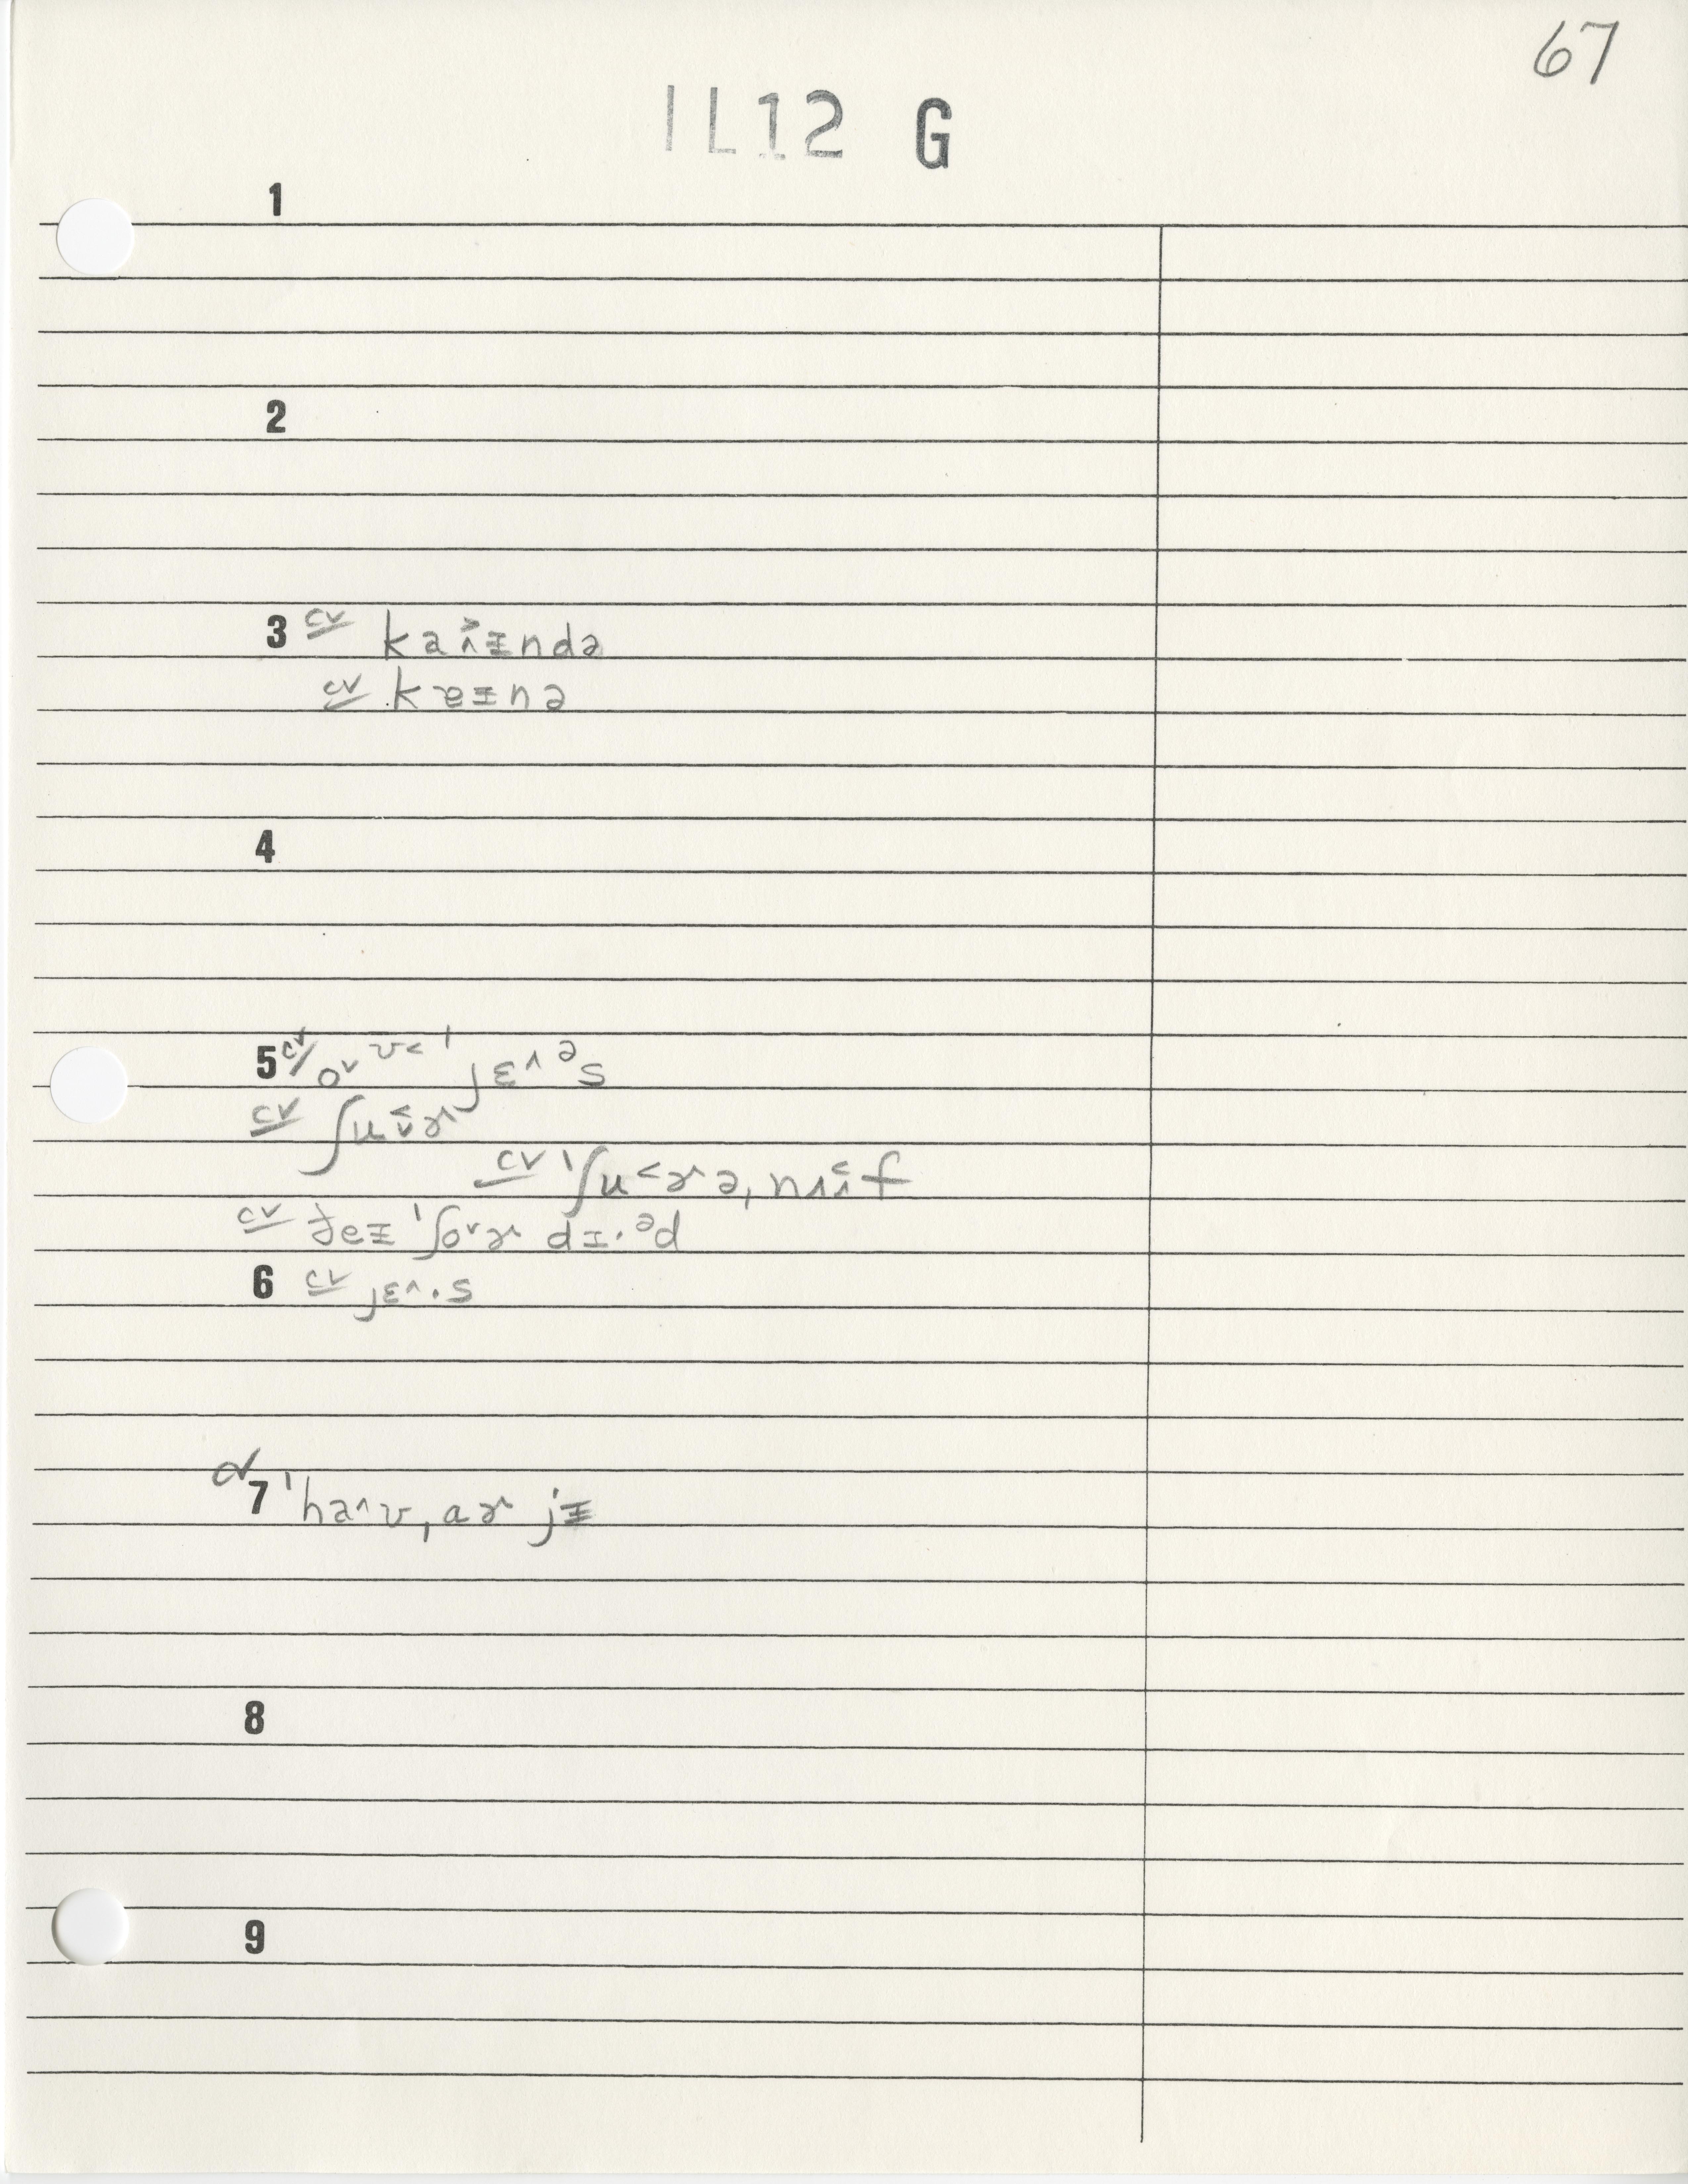 67
IL12 G
1
2
3 cv kaɪ̯ɨndə
cv kɐɨnə
4
5 cv o˅ ʋ˂ ˈjɛ˄ əs
cv ʃu˂˅ɚ
cv ˈʃu˂ɚə,nʌɪ˂f
cv ɟeɨ ˈʃo˅ɚ dɪ·əd
6 cv jɛ˄·s
7 cv ˈha˄ʋ,aɚ jɨ
8
9